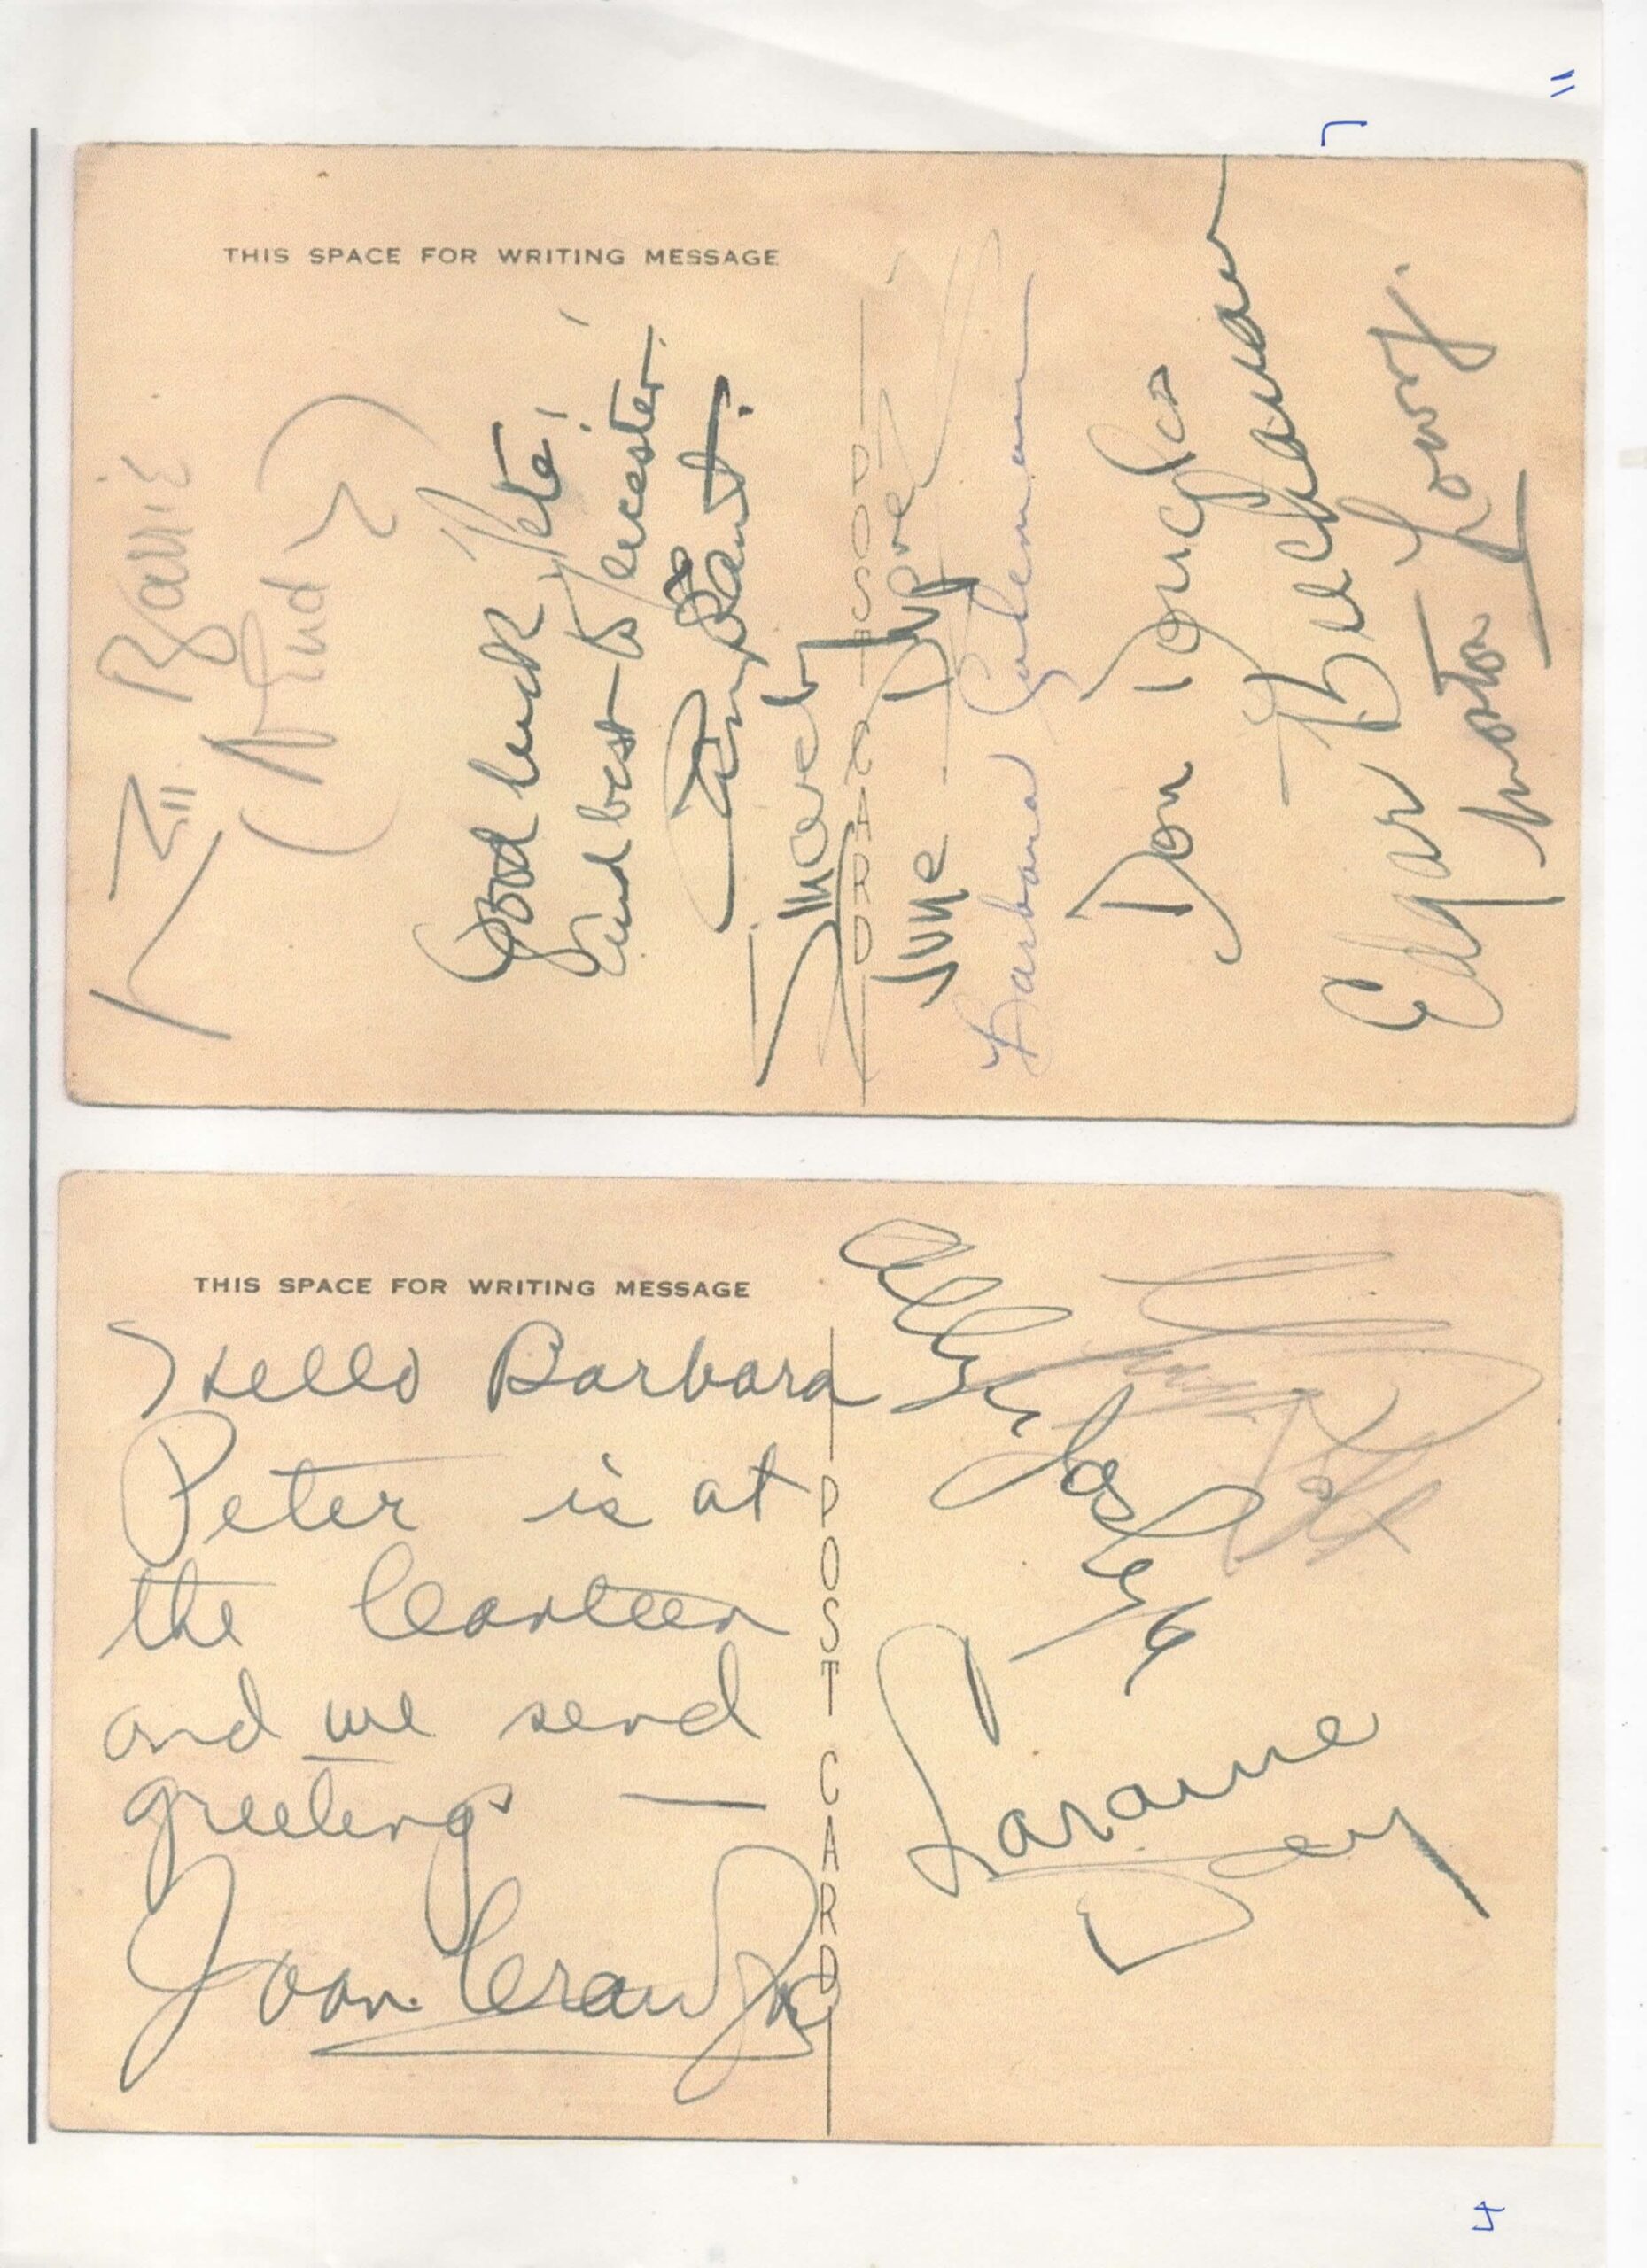 THIS SPACE FOR WRITING MESSAGE
Barrie
Good luck Pete!
and best to Leicester.
June
Barbara Coleman
Don Douglas
Edgar Buchanan
Morton Lowry.
POST CARD
THIS SPACE FOR WRITING MESSAGE
Hello Barbara
Peter is at
the Canteen
and we send
greetings —
Joan Crawford
POST CARD
Allyn Joslyn
Laraine
Day